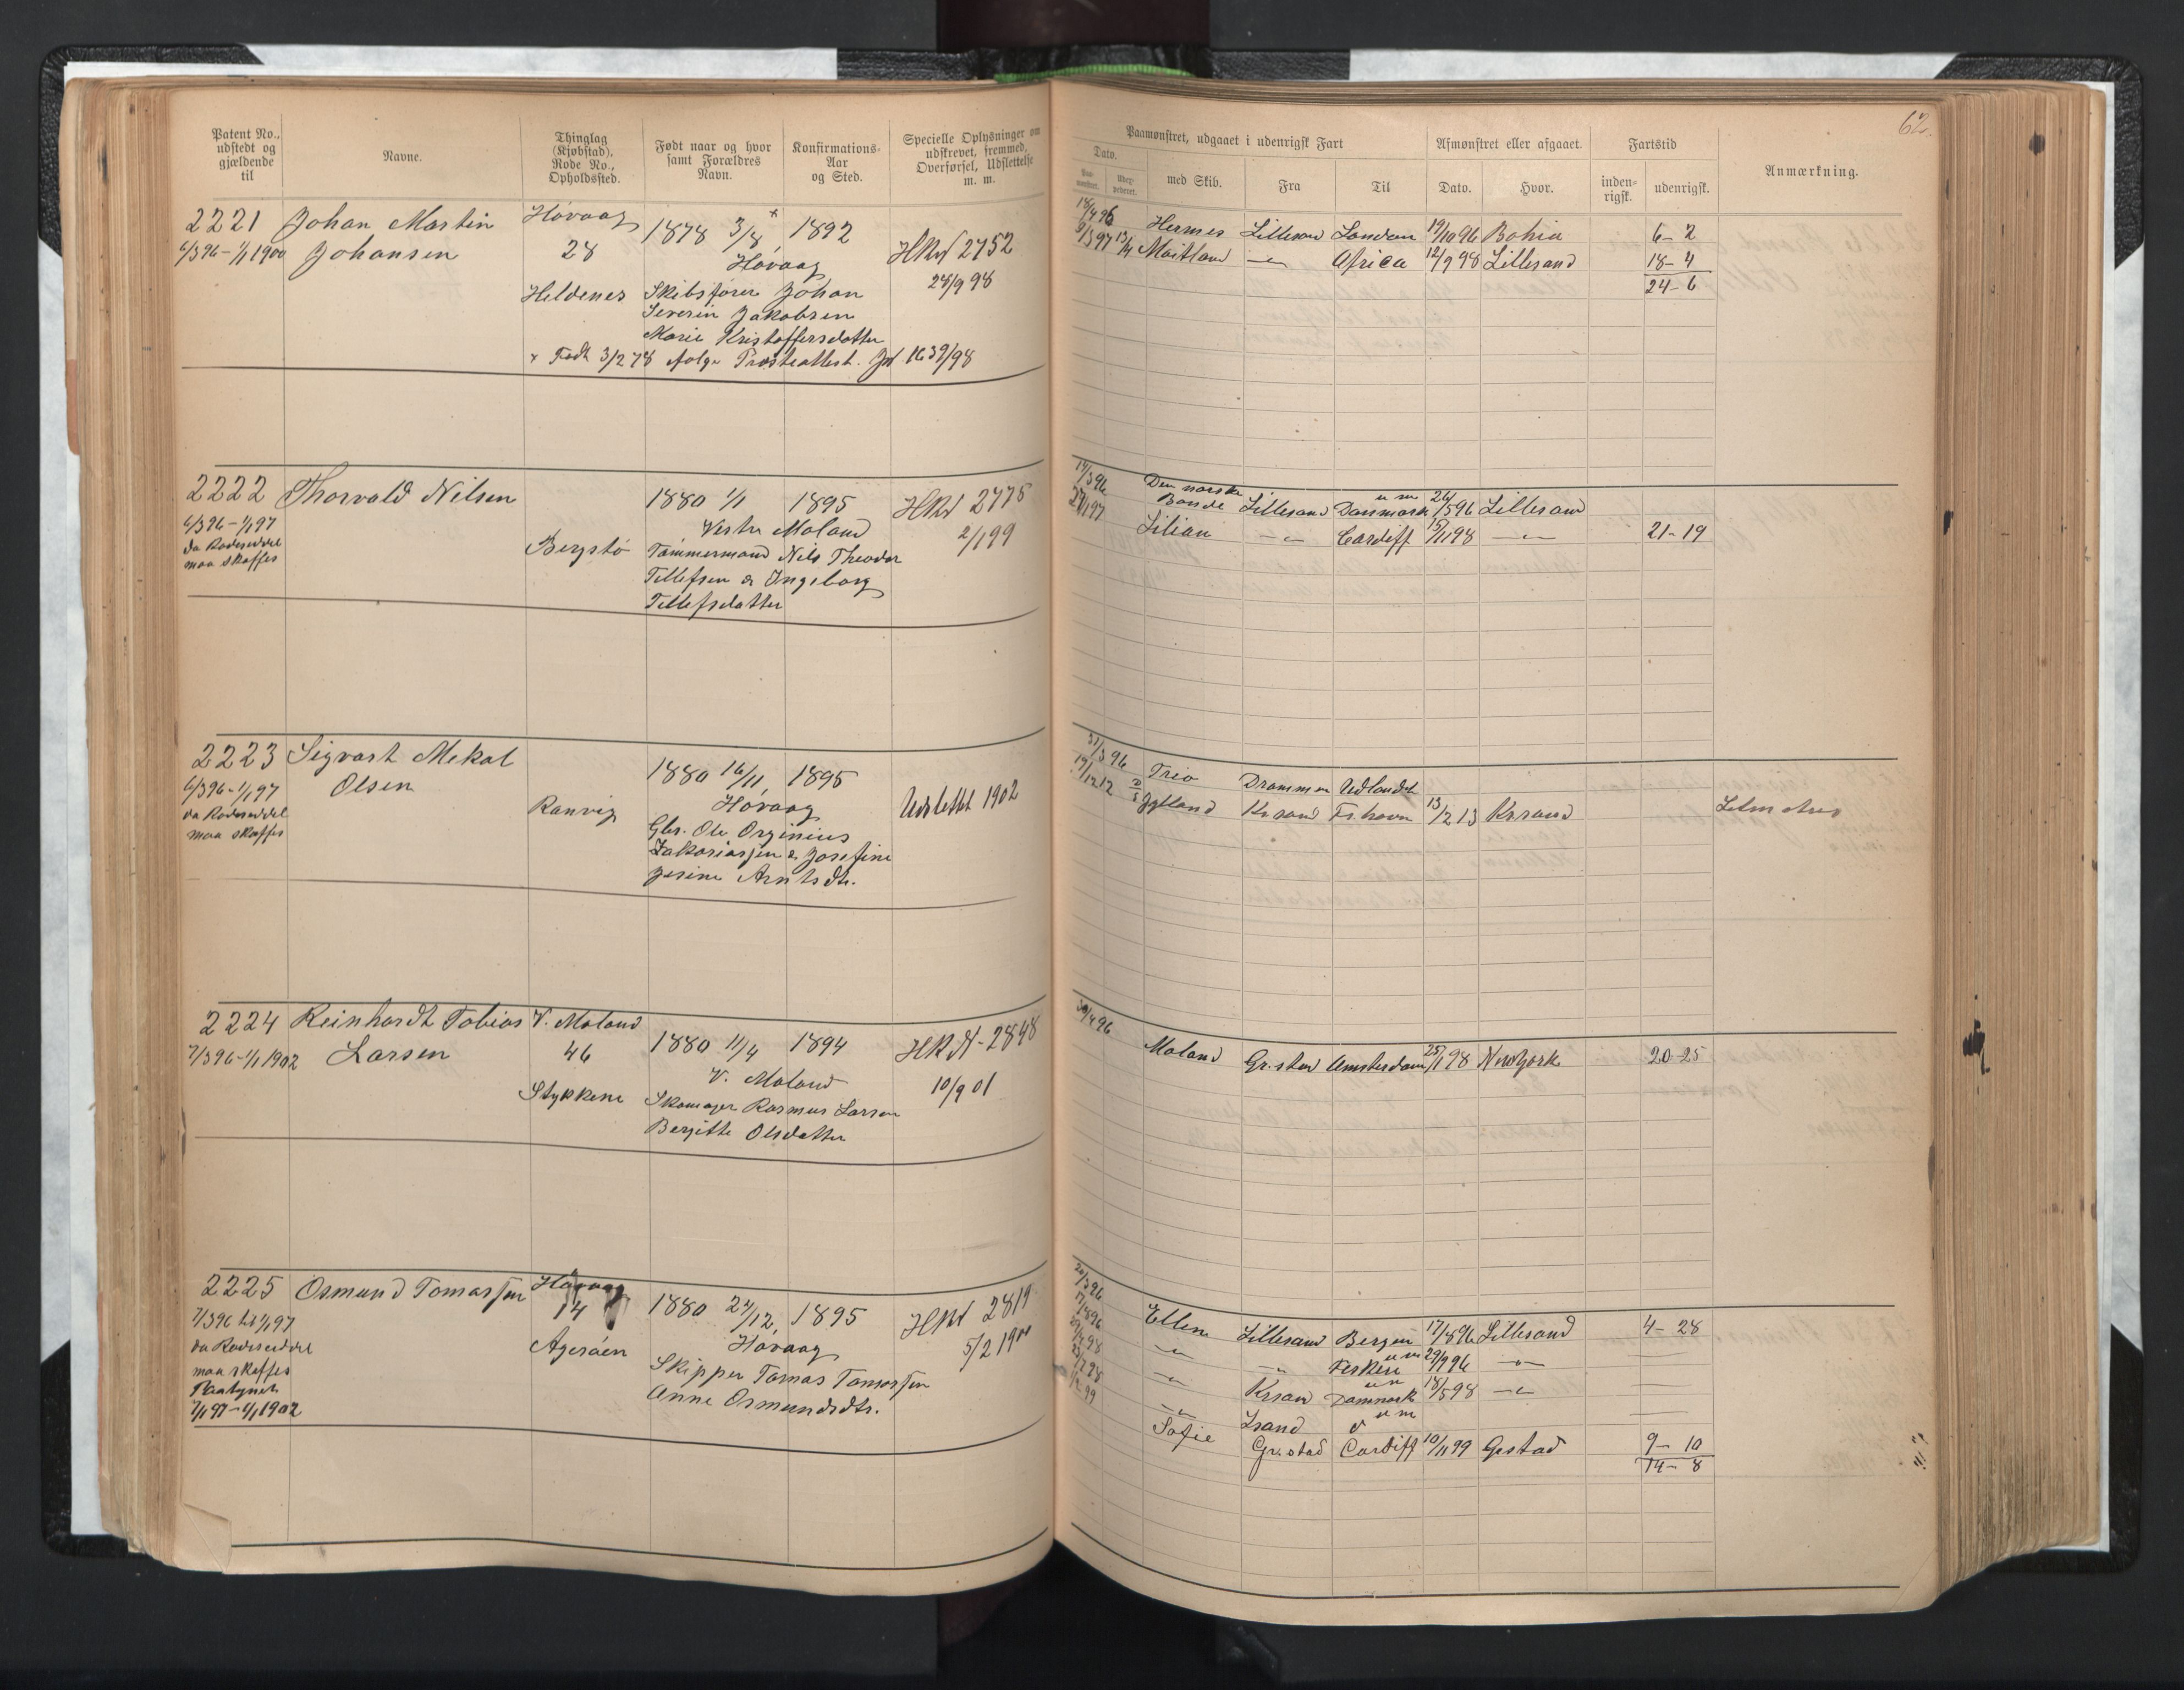 Patent No., udstedt og gjældende til
Navne.
Thinglag (Kjøbstad), Rode No., Opholdssted.
Født naar og hvor samt Forældres Navn.
Konfirmations-Aar og Sted.
Specielle Oplysninger om udskrevet, fremmed, Overførsel, Udslettelse m. m.
2221 Johan Martin Høvaag 1878 3/8 × 1892 HRN 2752
6/3 96 - 1/1 1900 Johansen 28 Høvaag 28/9 98
Heldenes Skibsfører Johan
Severin Jakobsen
Marie Kristoffersdatter
× Født 3/2 78 ifølge Præsteattest. Jnl 1639/98
2222 Thorvald Nilsen 1880 1/1 1895 HRN 2775
6/3 96 - 1/1 97 Vestre Moland 2/1 99
da Rodeseddel Bergstø Tømmermand Nils Theodor
maa skaffes Tellefsen & Ingeborg
Tellefsdatter
2223 Sigvart Mekal 1880 16/11 1895
6/3 96 - 1/1 97 Olsen Høvaag Udslettet 1902
da Rodeseddel Ranvig Gbr. Ole Orginius
maa skaffes Zakariasjen & Josefine
Jesine Arntsdtr.
2224 Reinhardt Tobias V. Moland 1880 11/4 1894 HRN - 2848
7/3 96 - 1/1 1902 Larsen 46 V. Moland 10/9 01
Støkkene Skomager Rasmus Larsen
Bergitte Olsdatter
2225 Osmund Tomassen Høvaag 1880 24/12, 1895 HRN 2819
7/3 96 til 1/1 97 14 Høvaag 5/2 1901
da Rodeseddel Ageröen Skipper Tomas Tomassen
maa skaffes Anne Osmundsdtr.
Paategnet
1/1 97 - 1/1 1902
62.
Paamønstret, udgaaet i udenrigsk Fart
Afmønstret eller afgaaet.
Fartstid
Anmærkning.
Dato.
med Skib.
Fra
Til
Dato.
Hvor.
inden-rigsk.
udenrigsk.
18/4 96 Hermes Lillesand London 19/10 96 Bahia 6 - 2
9/3 97 13/4 Maitland - " - Africa 12/9 98 Lillesand 18 - 4
24 - 6
14/3 96 Den norske Bonde Lillesand Danmark u m 26/5 96 Lillesand
27/1 97 Lilian - " - Cardiff 15/11 98 - " - 21 - 19
31/3 96 Trio Drammen Udlandet
17/12 12 Jylland Krsand Fr.havn 13/2 13 Krsand
30/4 96 Moland Gr.stad Amsterdam 25/1 98 NewYork 20 - 25
20/3 96 Ellen Lillesand Bergen 17/8 96 Lillesand 4 - 28
17/8 96 - " - - " - u m 29/9 96 - " -
- " - Krsan Danmark u m 18/5 98 - " -
- " - Lsand d u m
Sofie Gr.stad Cardiff 10/11 99 Grstad 9 - 10
14 - 8